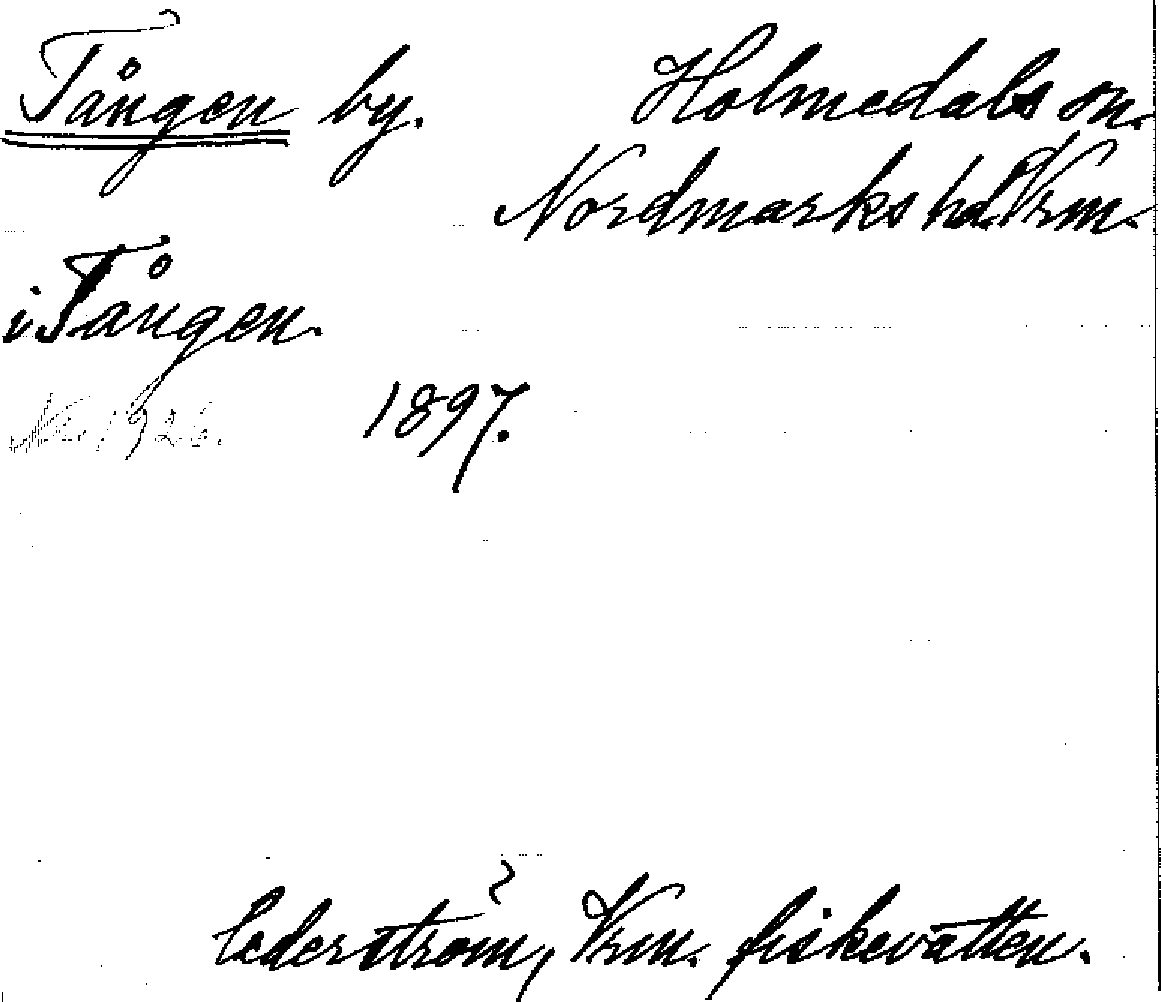 Tången by. Holmedals sn.
Nordmarks hd. Vrm.
i Tången.
1897.
Cederström, Vrm. fiskevatten.